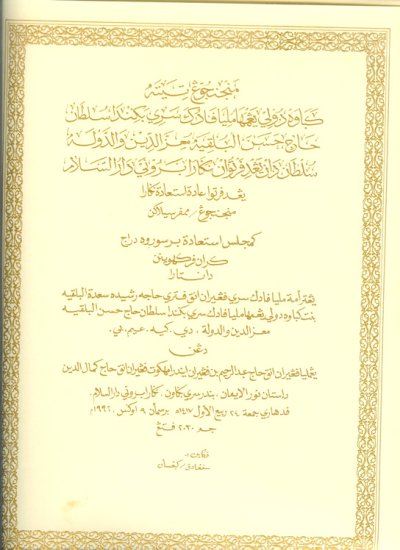 منجنجوڠ تيته
كباوه دولي يڠمها مليا فادوك سري بكندا سلطان
حاج حسن البلقيه معزالدين والدوله
سلطان دان يڠد فرتوان نݢارا بروني دارالسلام
يڠد فرتوا عادة استعادة نݢارا
منجنجوڠ / ممفرسيلاكن
كمجلس استعادة برسوروه دراج
ڬران فركهوينن
دانتارا
يڠتر أمة مليا فادك سري فڠيران انق فتري حاجه رشيده سعدة البلقيه
بنت كباوه دولي يڠمها مليا فادك سري بكندا سلطان حاج حسن البلقيه
معزالدين والدولة ، دي. كيه. عيم. بي.
دڠن
يڠمليا فڠيران انق حاج عبدالرحيم بن فڠيران ايندرا مهكوت فڠيران انق حاج كمال الدين
داستان نورالايمان، بندر سري بݢاون، نݢارا بروني دارالسلام.
فد هاري جمعة ٢٤ ربيع الأول ١٤١٧ه برسمأن ٩ اوكس ١٩٩٦م
جم ٢.٣٠ فتڠ
فكاين :-